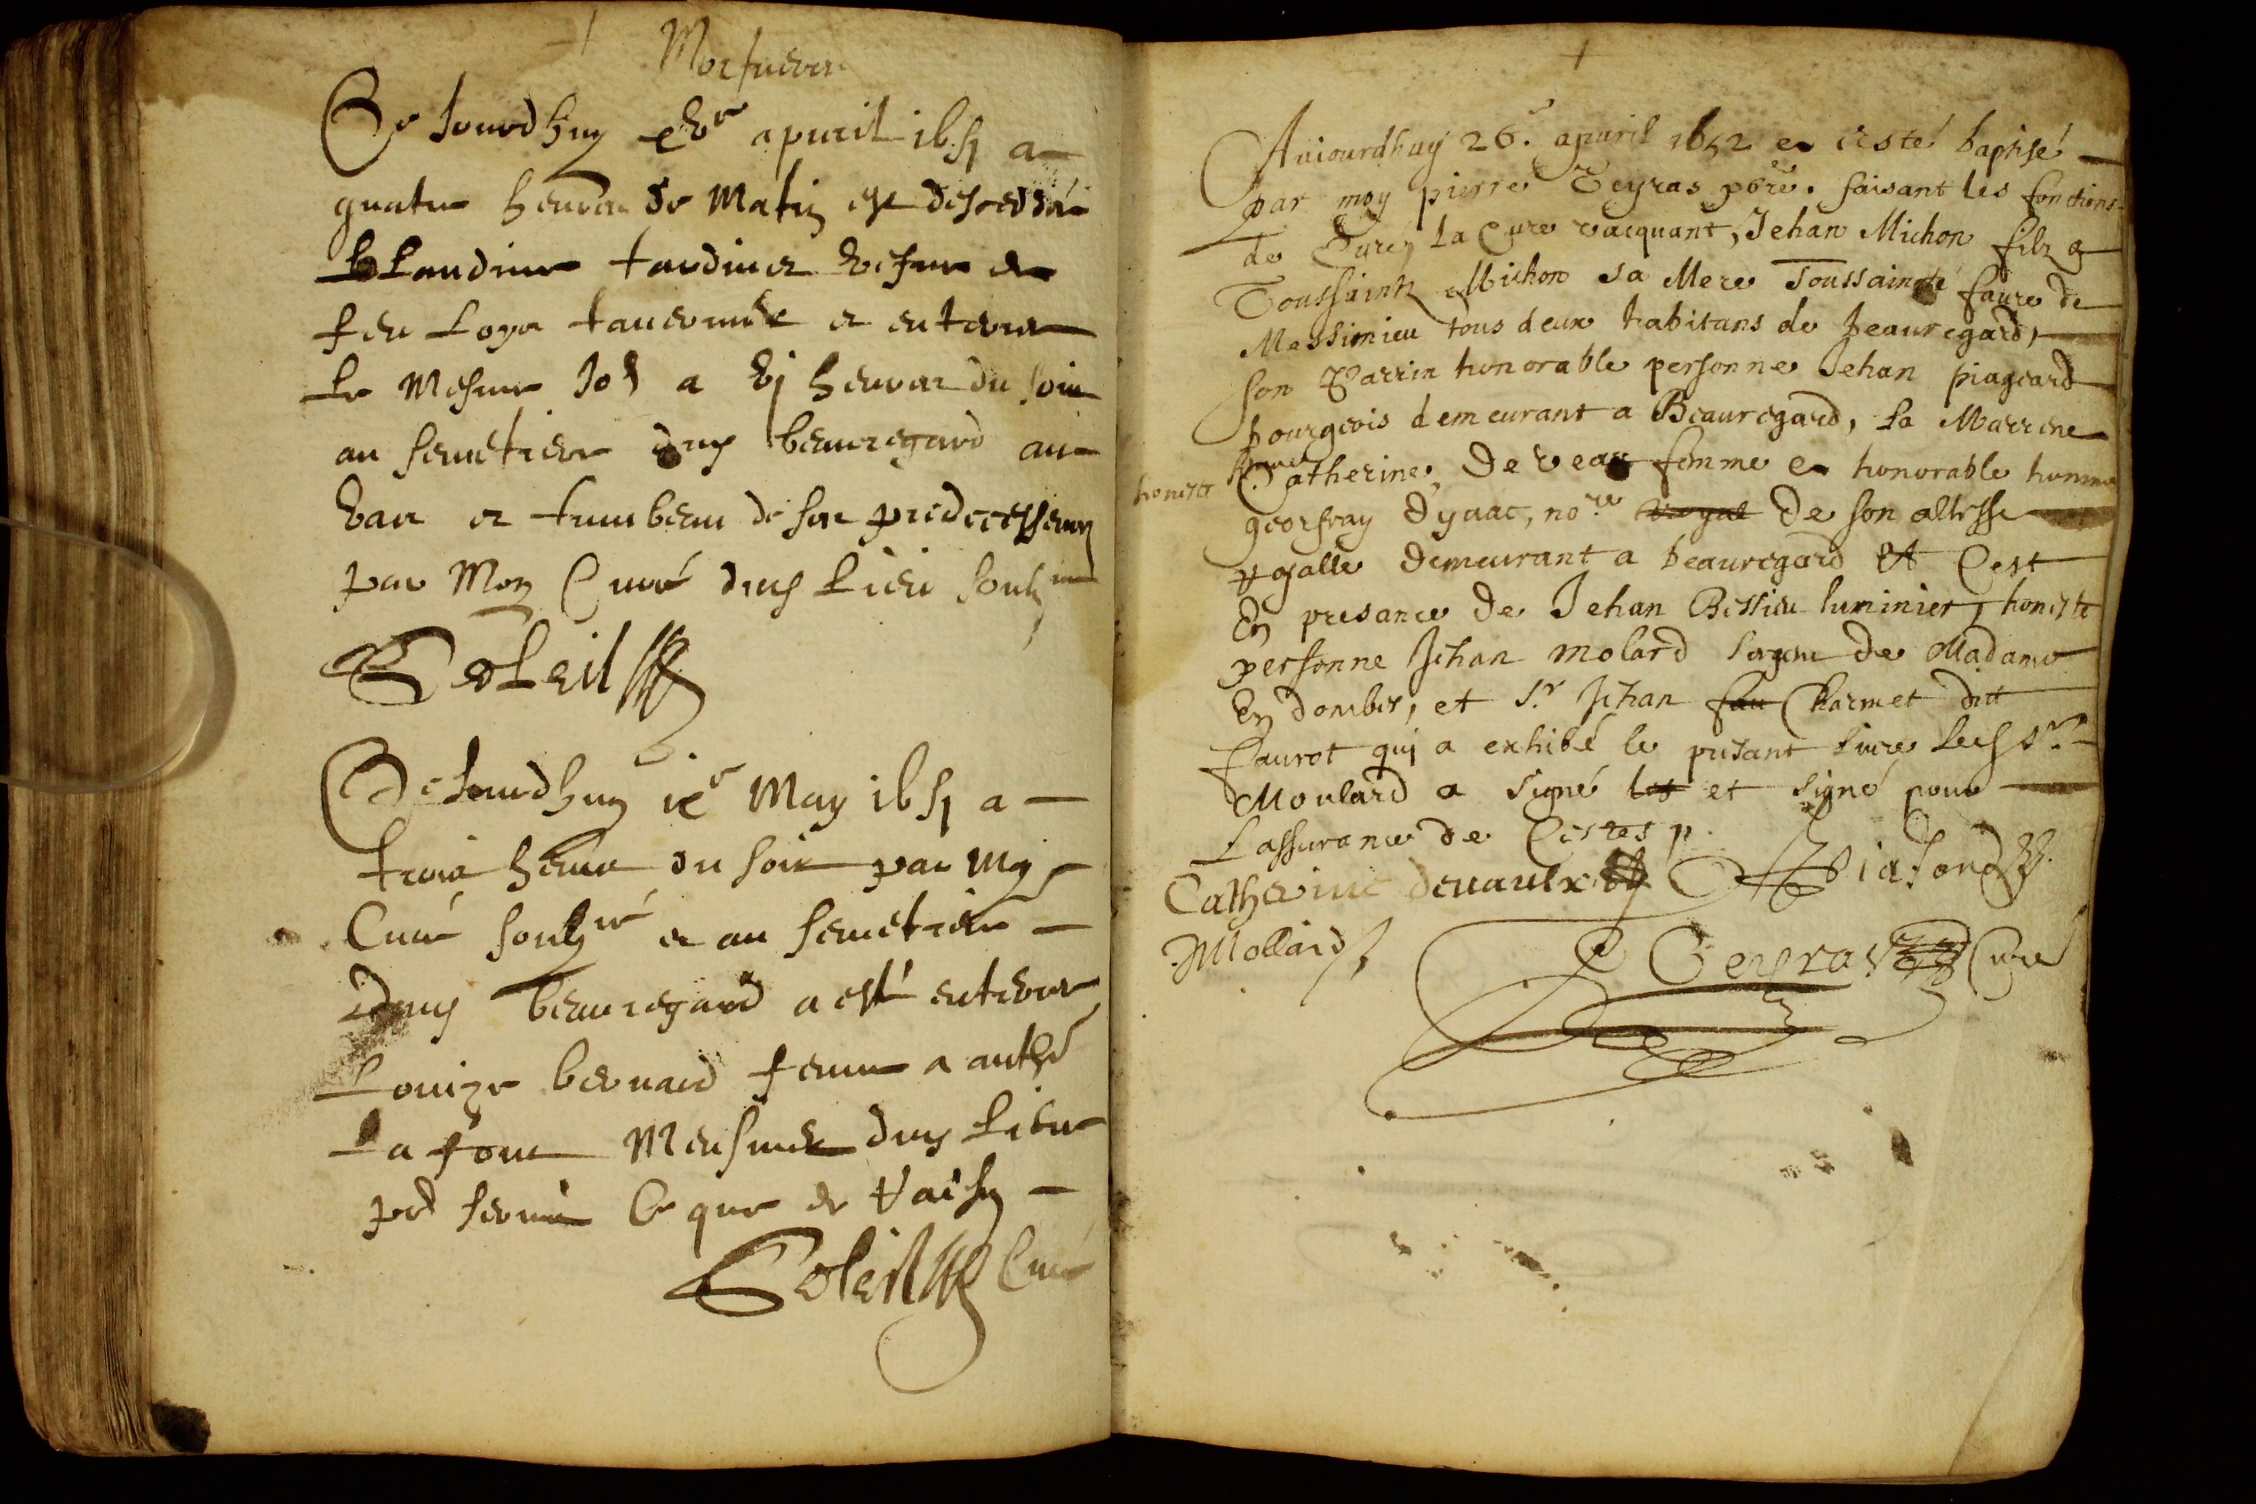 Mortuere
Ce Jourdhuy xve apvril 1651 a
quatre heures de Matin est descedée
Claudine tardiue vefue de
feu Loys tauernier et enterrée
le Mesme Jo^r a vj heures du soir
au semetiere duy beauregard au
vas et tumbeau de ses predecesseurs
par Moy Curé duy lieu soubz^né
Soleil
Ce Jourdhuy ixe May 1651 a
trois heures du soir par Moy
Curé soubz^né et au semetiere
duy beauregard a esté enterrée
Louize bernard femme a anthe
la font Meusnier duy lieu
Soleil Curé
Auiourdhuy 26.e apuril 1652 a esté baptisé
par moy pierre Teyras pbre. faisant les fonctions
de Curé, la Cure vacquant, Jehan Michon filz a
Toussainctz Michon sa Mere Toussaincte faure de
Messimieu tous deux habitans de beauregard,
son Parrin honorable personne Jehan piageard
bourgeois demeurant a Beauregard, la Marrene
honeste Catherine, Deveau femme a honorable homme
geoffray Dyuac, no.re royal de son altesse
royalle demeurant a beauregard et C'est
En presance de Jehan Bessieu luminier, honeste
personne Jehan molard sergent de Madame
En dombes, et S.r Jehan fau Charmet ditt
faurot qui a exhibé le presant liure led S.r
Moulard a signé les et signé pour
L'assurance de Cestes p.
Catherine devaulx
Mollard
Teyras Curé